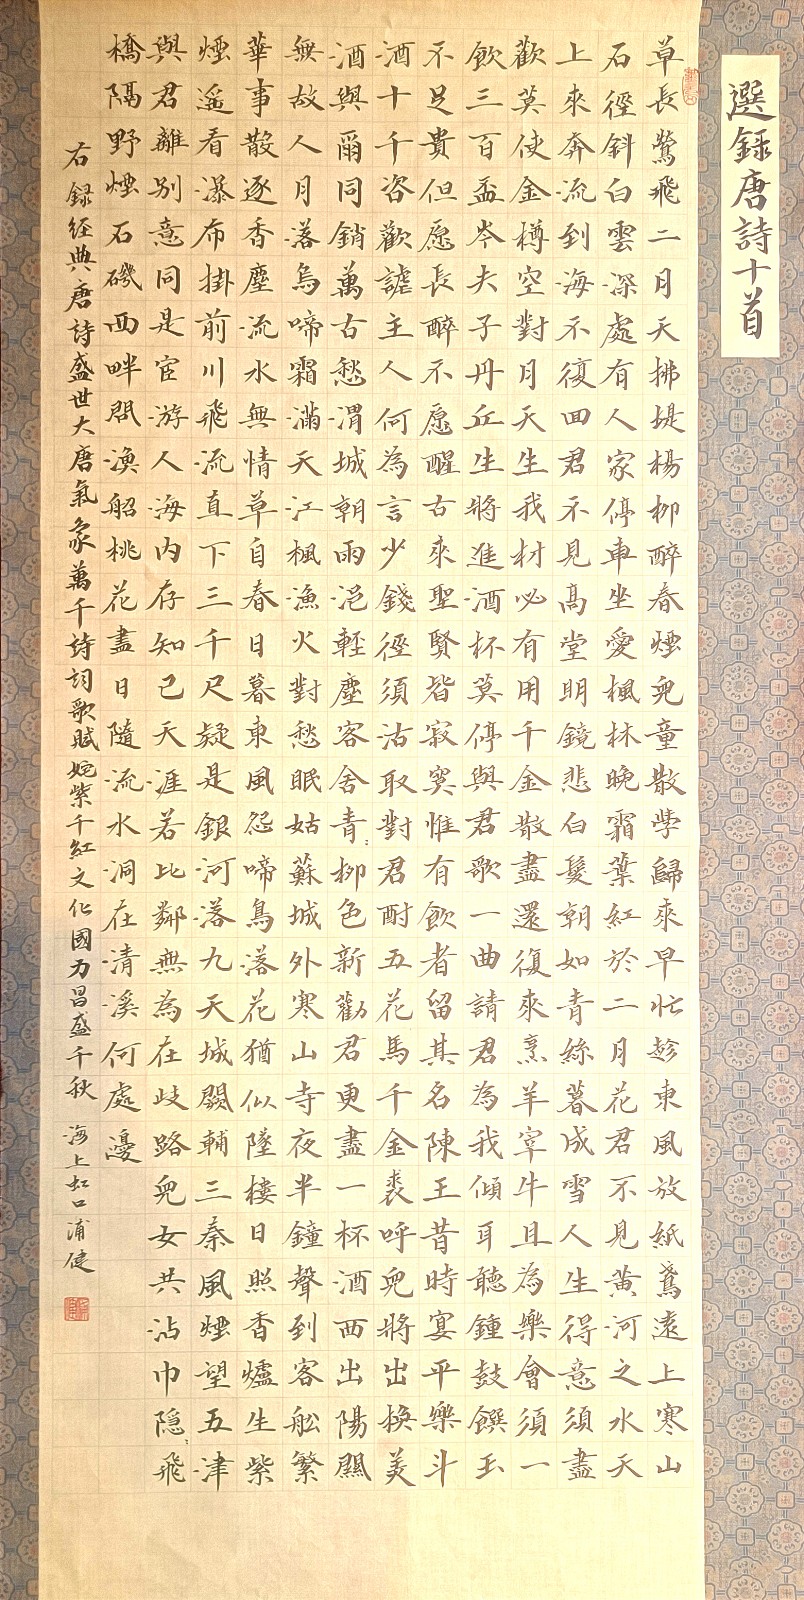 選録唐詩十首
草長鶯飛二月天拂堤楊柳醉春煙兒童散學歸來早忙趁東風放紙鳶遠上寒山
石徑斜白雲深處有人家停車坐愛楓林晚霜葉紅於二月花君不見黃河之水天
上來奔流到海不復回君不見高堂明鏡悲白髮朝如青絲暮成雪人生得意須盡
歡莫使金樽空對月天生我材必有用千金散盡還復來烹羊宰牛且為樂會須一
飲三百盃岑夫子丹丘生將進酒杯莫停與君歌一曲請君為我傾耳聽鍾鼓饌玉
不足貴但愿長醉不愿醒古來聖賢皆寂寞惟有飲者留其名陳王昔時宴平樂斗
酒十千咨歡謔主人何為言少錢徑須沽取對君酎五花馬千金裘呼兒將出換美
酒與爾同銷萬古愁渭城朝雨浥輕塵客舍青〻柳色新勸君更盡一杯酒西出陽關
無故人月落烏啼霜滿天江楓漁火對愁眠姑蘇城外寒山寺夜半鐘聲到客船繁
華事散逐香塵流水無情草自春日暮東風怨啼鳥落花猶似墜樓日照香爐生紫
煙遙看瀑布掛前川飛流直下三千尺疑是銀河落九天城闕輔三秦風煙望五津
與君離別意同是宦游人海內存知己天涯若比鄰無為在歧路兒女共沾巾隱〻飛
橋隔野煙石磯西畔問漁船桃花盡日隨流水洞在清溪何處邊
右録經典唐詩盛世大唐氣象萬千詩詞歌賦姹紫千紅文化國力昌盛千秋 海上虹口浦健